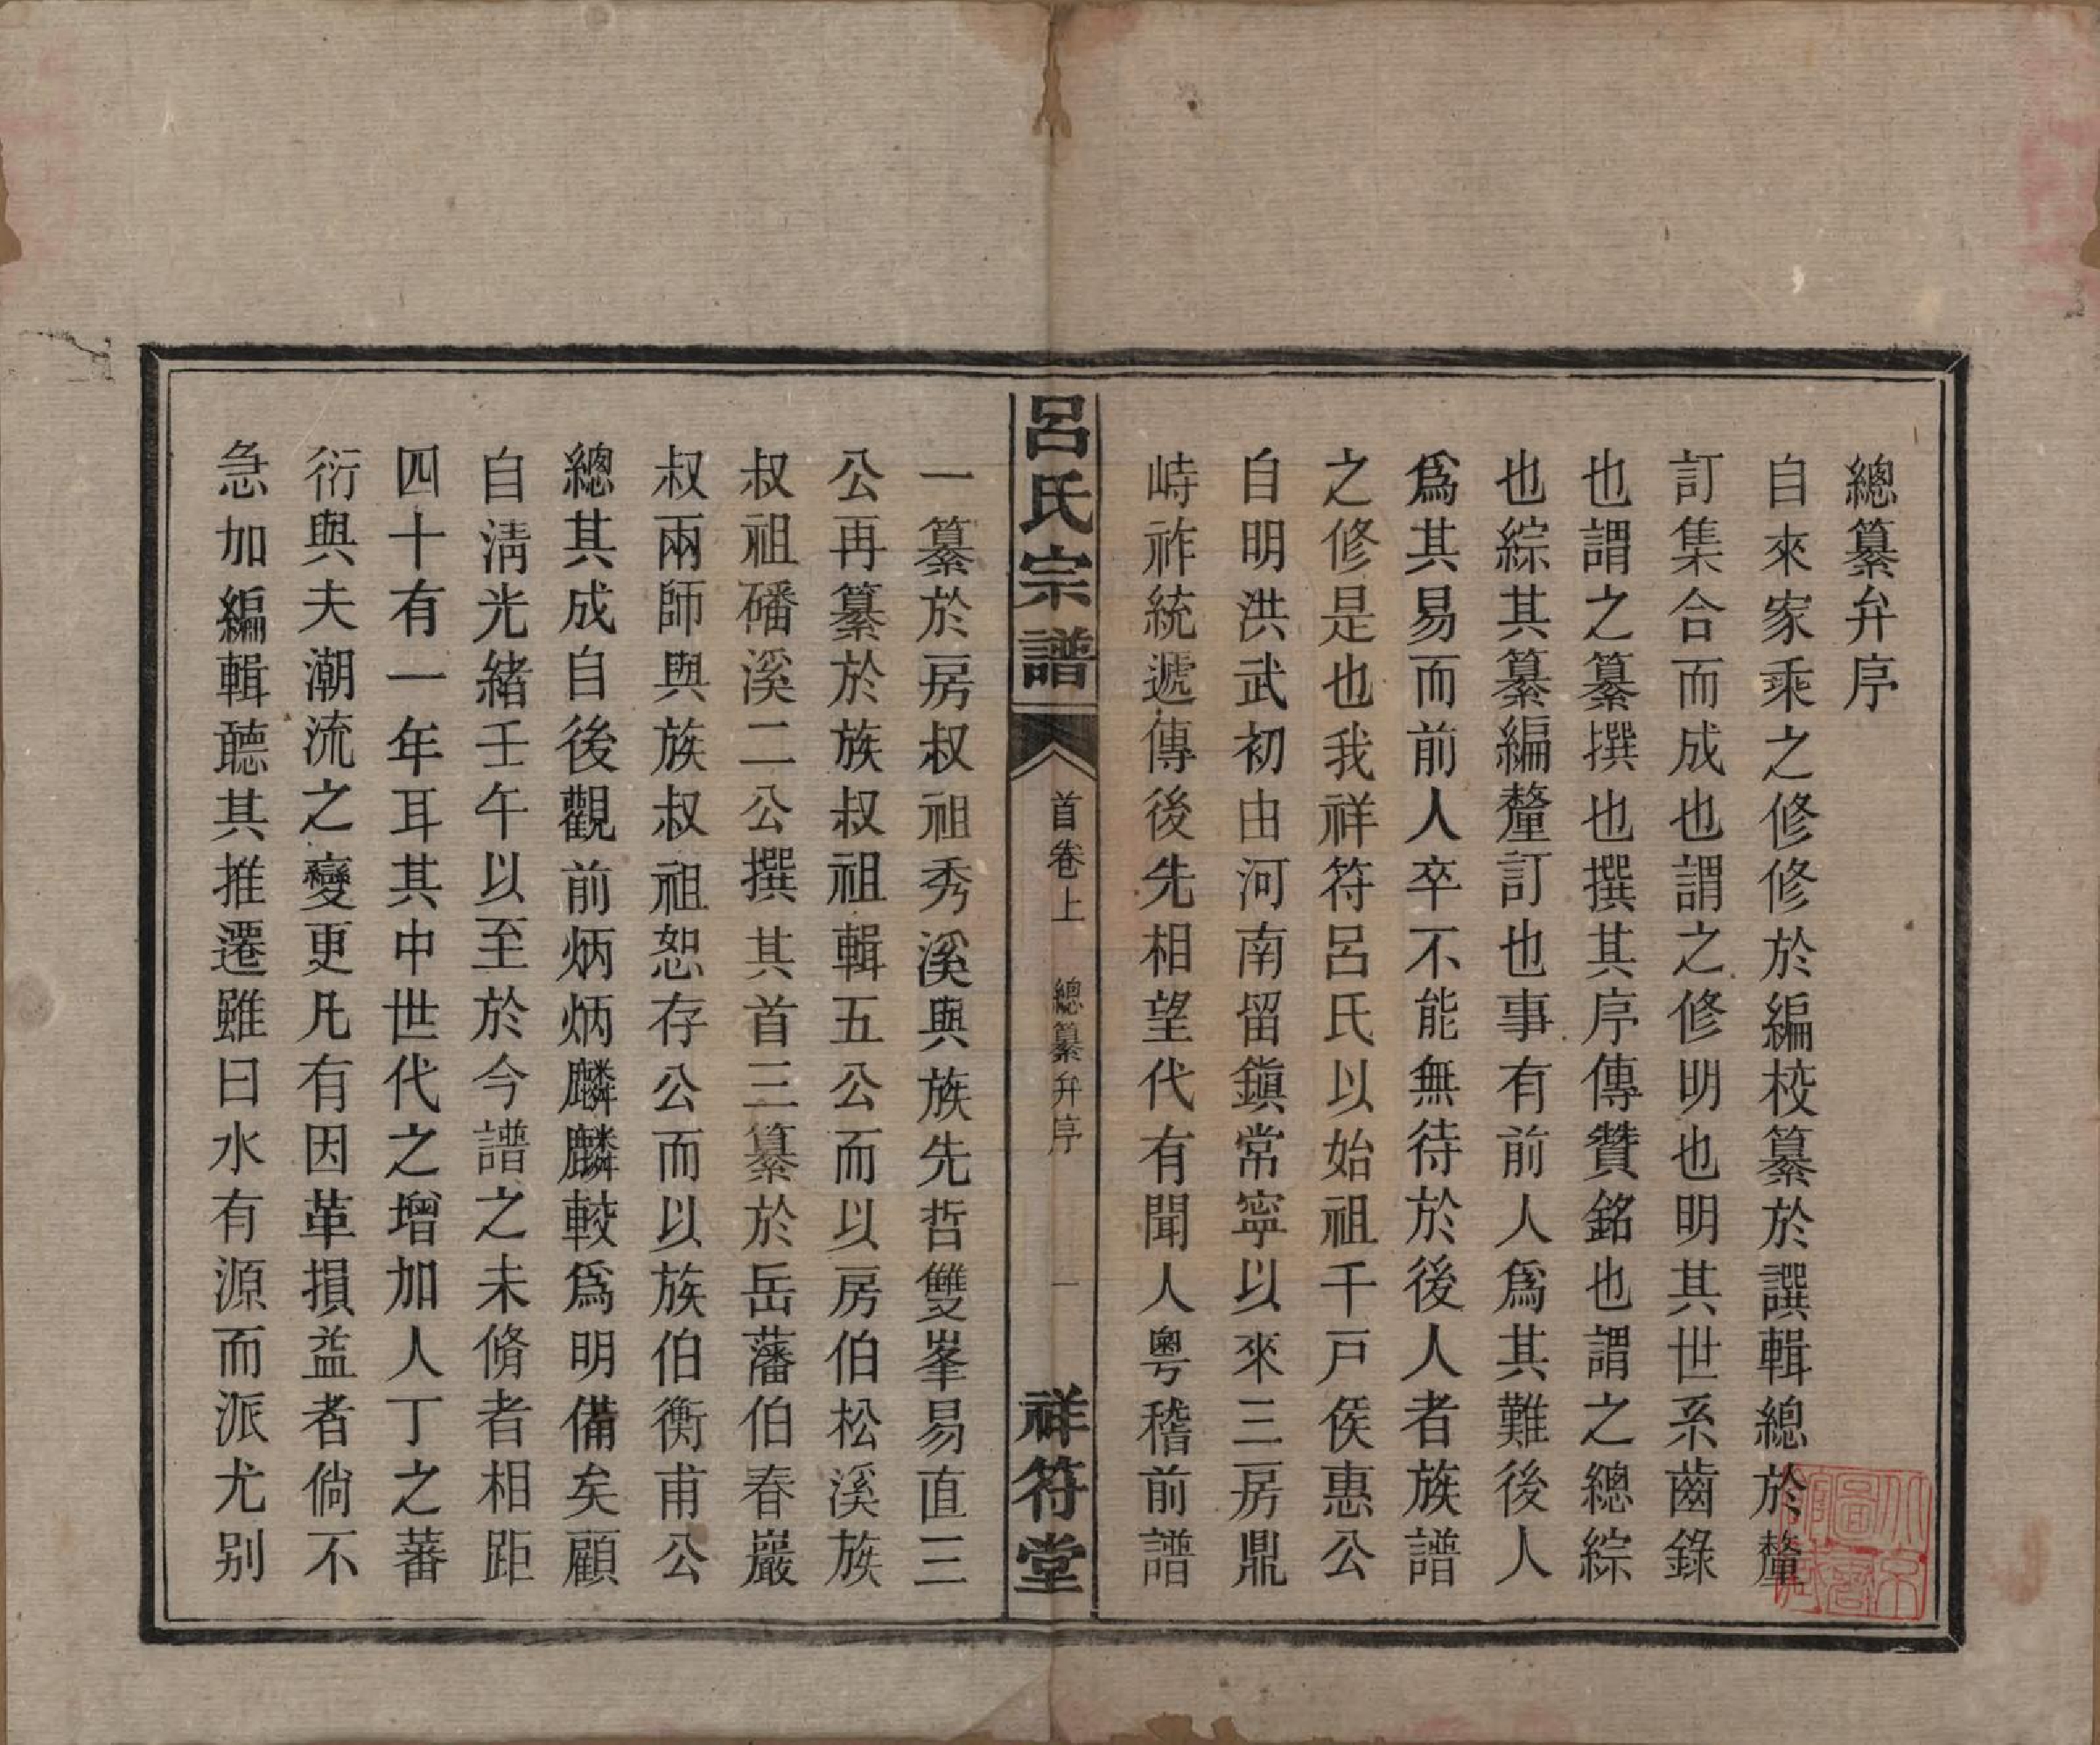 總纂弁序
自來家乘之修修於編校纂於譔輯總於釐
訂集合而成也謂之修明也明其世系齒錄
也謂之纂撰也撰其序傳贊銘也謂之總綜
也綜其纂編釐訂也事有前人爲其難後人
爲其易而前人卒不能無待於後人者族譜
之修是也我祥符呂氏以始祖千戸侯惠公
自明洪武初由河南留鎭常寧以來三房鼎
峙祚統遞傳後先相望代有聞人粵稽前譜
呂氏宗譜
首卷上
總纂弁序
一
祥符堂
一纂於房叔祖秀溪與族先哲雙峯易直三
公再纂於族叔祖輯五公而以房伯松溪族
叔祖磻溪二公撰其首三纂於岳藩伯春巖
叔兩師與族叔祖恕存公而以族伯衡甫公
總其成自後觀前炳炳麟麟較爲明備矣顧
自淸光緒壬午以至於今譜之未脩者相距
四十有一年耳其中世代之增加人丁之蕃
衍與夫潮流之變更凡有因革損益者倘不
急加編輯聽其推遷雖曰水有源而派尤别